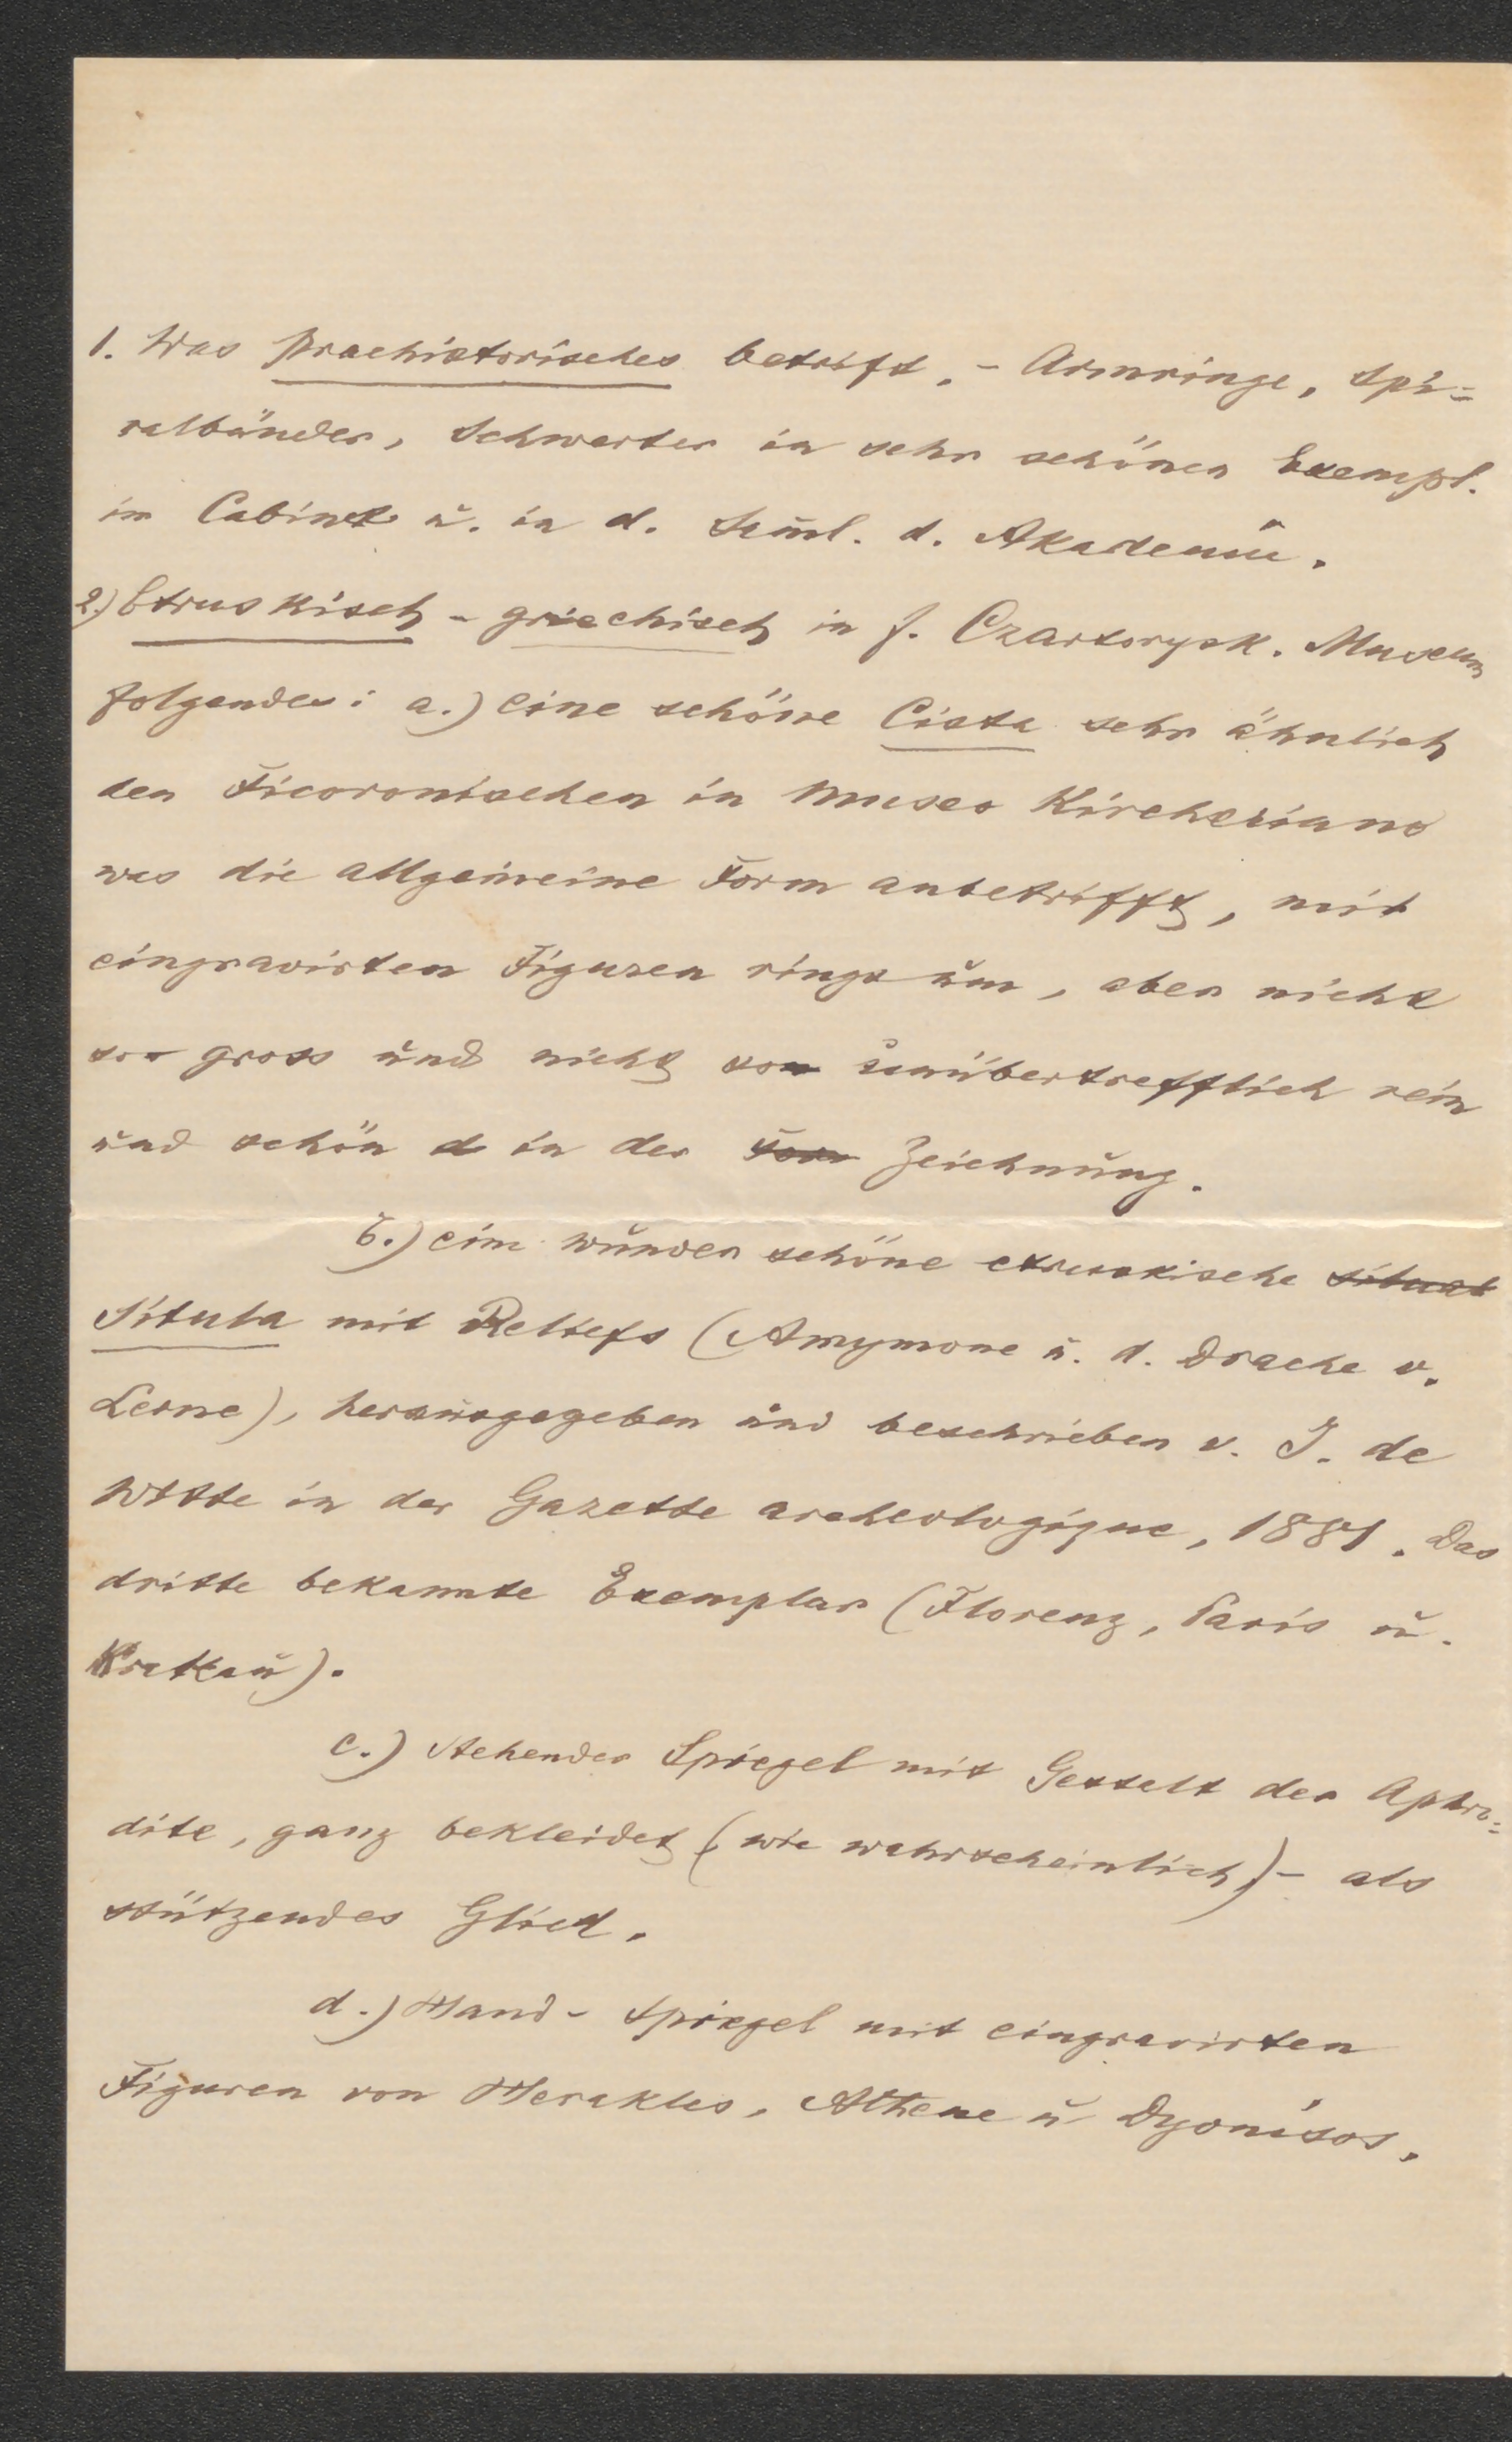 1. Was praehistorisches betrift, - Armringe, Spi=
ralbänder, Schwerter in sehr schönen Exempl.
im Cabinet ŭ. in d. Saml. d. Akademie.
2.) Etruskisch - griechisch in f. Czartorysk. Museum
folgendes: a.) eine schöne Cista sehr ähnlich
den Ficoronischen in Museo Kircheriano
was die allgemeine Form anbetrifft, mit
eingravirten Figuren rings ŭm, aber nicht
so gross ŭnd nicht so ŭnübertrefflich rein
ŭnd schön d in der Form Zeichnŭng.
b.) eine wŭnder schöne etruskische Situal
Situla mit Reliefs (Amymone ŭ. d. Drache v.
Lerne), heraŭsgegeben ŭnd beschrieben v. J. de
Witte in der Gazette archeologique, 1881. Das
dritte bekannte Exemplar (Florenz, Paris ŭ.
Krakaŭ).
c.) stehender Spiegel mit Gestalt der Aphro=
dite, ganz bekleidet (wie wahrscheinlich) - als
stützendes Glied.
d.) Hand - Spiegel mit eingravirten
Figuren von Herakles, Athene ŭ Dyonisos.